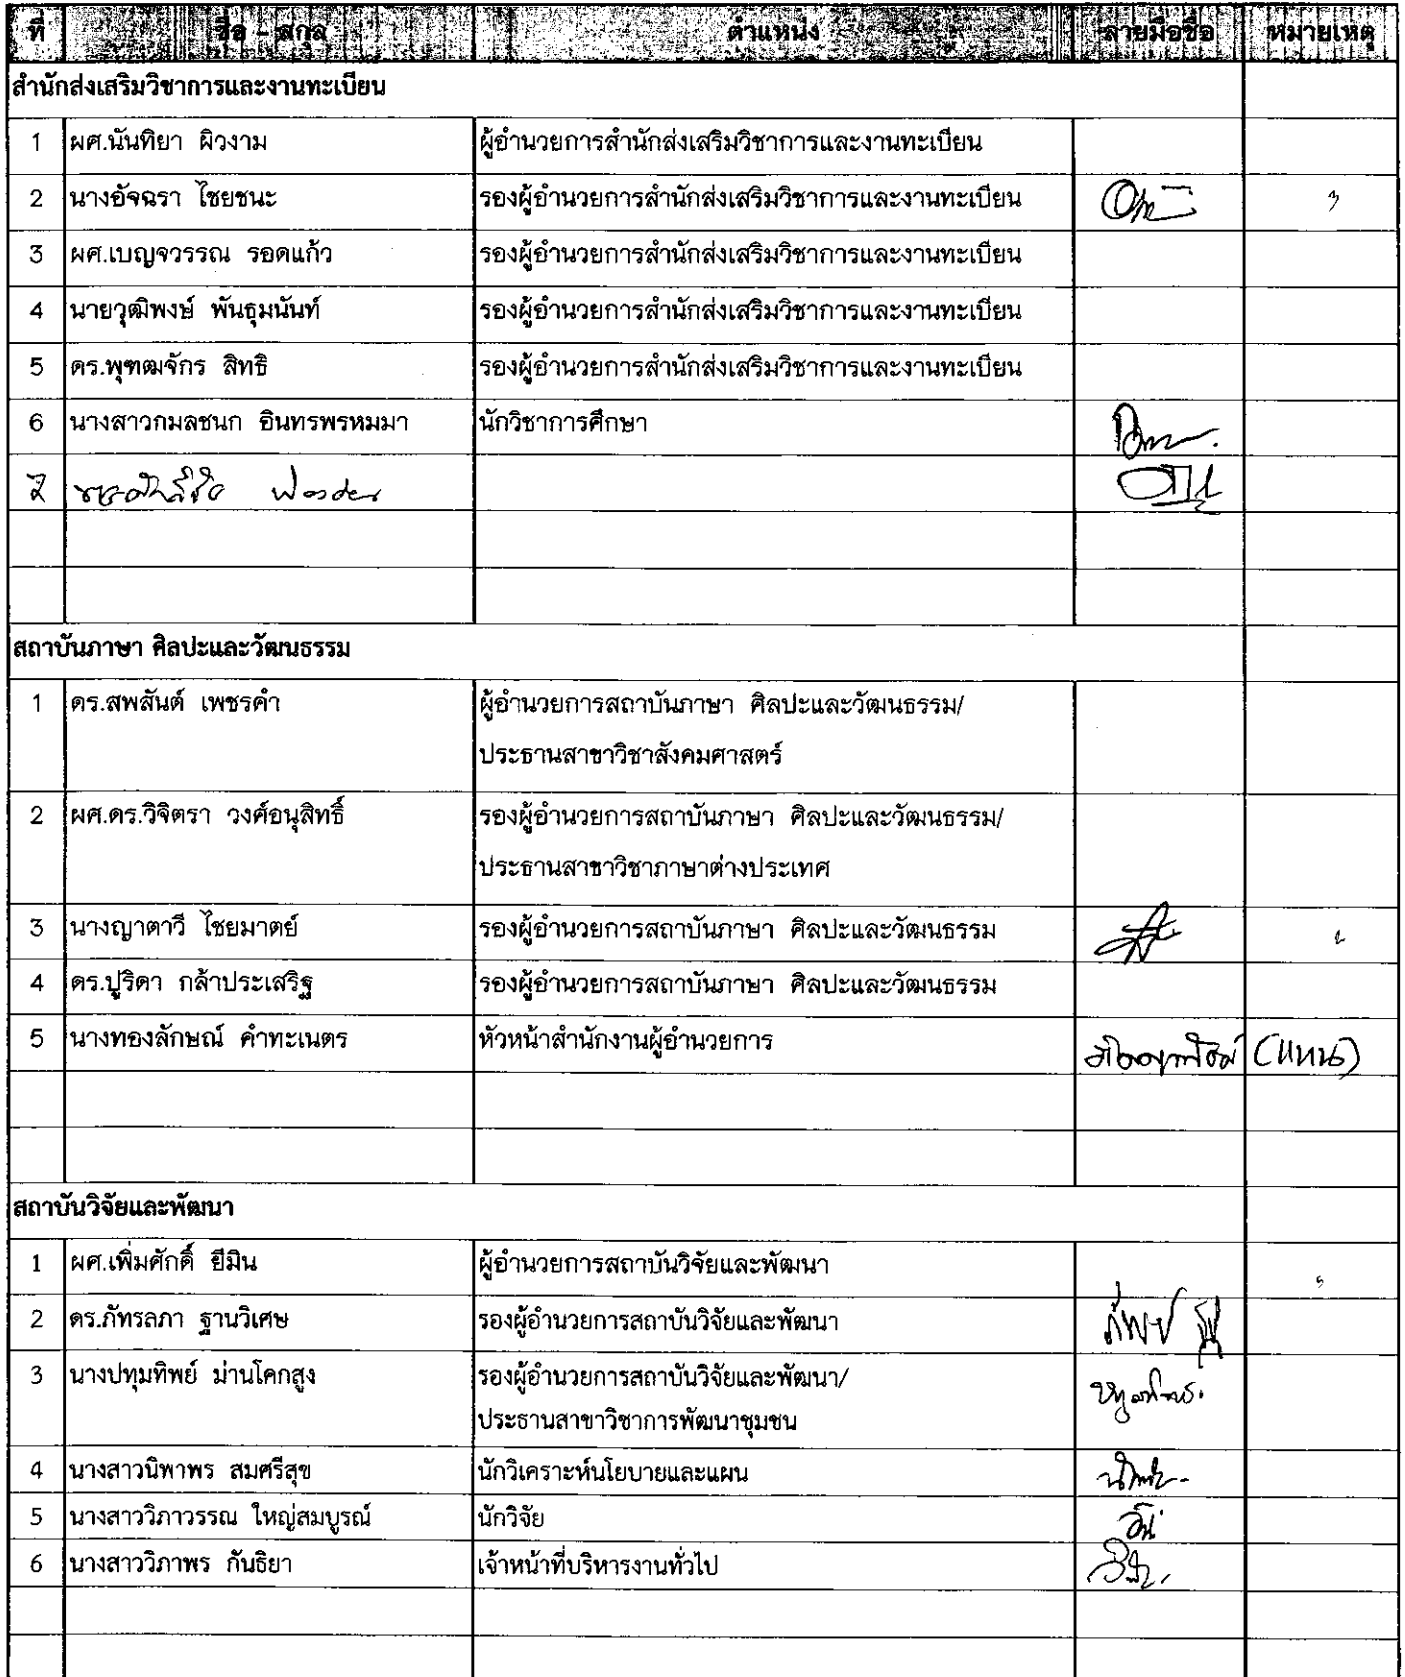 ที่ ชื่อ - สกุล ตำแหน่ง ลายมือชื่อ หมายเหตุ
สำนักส่งเสริมวิชาการและงานทะเบียน
1 ผศ.นันทิยา ผิวงาม ผู้อำนวยการสำนักส่งเสริมวิชาการและงานทะเบียน
2 นางอัจฉรา ไชยชนะ รองผู้อำนวยการสำนักส่งเสริมวิชาการและงานทะเบียน
3 ผศ.เบญจวรรณ รอดแก้ว รองผู้อำนวยการสำนักส่งเสริมวิชาการและงานทะเบียน
4 นายวุฒิพงษ์ พันธุมนันท์ รองผู้อำนวยการสำนักส่งเสริมวิชาการและงานทะเบียน
5 ดร.พุฑฒจักร สิทธิ รองผู้อำนวยการสำนักส่งเสริมวิชาการและงานทะเบียน
6 นางสาวกมลชนก อินทรพรหมมา นักวิชาการศึกษา
สถาบันภาษา ศิลปะและวัฒนธรรม
1 ดร.สพสันต์ เพชรคำ ผู้อำนวยการสถาบันภาษา ศิลปะและวัฒนธรรม/
ประธานสาขาวิชาสังคมศาสตร์
2 ผศ.ดร.วิจิตรา วงศ์อนุสิทธิ์ รองผู้อำนวยการสถาบันภาษา ศิลปะและวัฒนธรรม/
ประธานสาขาวิชาภาษาต่างประเทศ
3 นางญาตาวี ไชยมาตย์ รองผู้อำนวยการสถาบันภาษา ศิลปะและวัฒนธรรม
4 ดร.ปูริดา กล้าประเสริฐ รองผู้อำนวยการสถาบันภาษา ศิลปะและวัฒนธรรม
5 นางทองลักษณ์ คำทะเนตร หัวหน้าสำนักงานผู้อำนวยการ (แทน)
สถาบันวิจัยและพัฒนา
1 ผศ.เพิ่มศักดิ์ ยีมิน ผู้อำนวยการสถาบันวิจัยและพัฒนา
2 ดร.ภัทรลภา ฐานวิเศษ รองผู้อำนวยการสถาบันวิจัยและพัฒนา
3 นางปทุมทิพย์ ม่านโคกสูง รองผู้อำนวยการสถาบันวิจัยและพัฒนา/
ประธานสาขาวิชาการพัฒนาชุมชน
4 นางสาวนิพาพร สมศรีสุข นักวิเคราะห์นโยบายและแผน
5 นางสาววิภาวรรณ ใหญ่สมบูรณ์ นักวิจัย
6 นางสาววิภาพร กันธิยา เจ้าหน้าที่บริหารงานทั่วไป